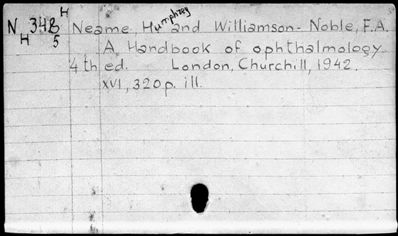 H
N 348 Neame, Humphrey and Williamson-Noble, F.A.
H 5 A Handbook of ophthalmology
4th ed. London, Churchill, 1942.
XVI, 320p. ill.